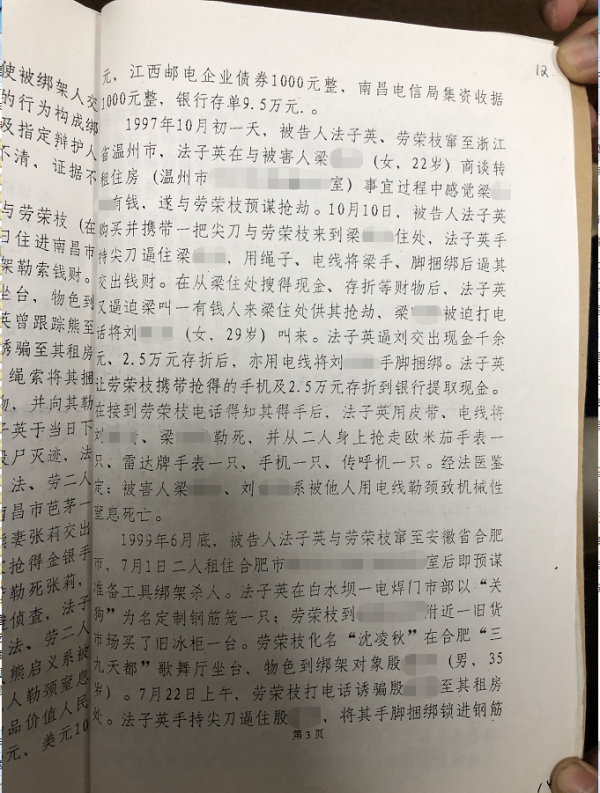 12
使被绑架人交
的行为构成绑
及指定辩护人
不清，证据不
与劳荣枝（在
日住进南昌市
架勒索钱财。
坐台，物色到
英曾跟踪熊至
诱骗至其租房
绳索将其捆
物，并向其勒
子英于当日下
尸灭迹，法
法、劳二人
南昌市芭茅一
妻张莉交出
抢得金银手
勒死张莉，
侦查，法子
法、劳二人
熊启义系被
人勒颈窒息
品价值人民
元、美元10
元，江西邮电企业债券1000元整，南昌电信局集资收据
1000元整，银行存单9.5万元.。
1997年10月初一天，被告人法子英、劳荣枝窜至浙江
省温州市，法子英在与被害人梁（女，22岁）商谈转
租住房（温州市室）事宜过程中感觉梁
有钱，遂与劳荣枝预谋抢劫。10月10日，被告人法子英
购买并携带一把尖刀与劳荣枝来到梁住处，法子英手
持尖刀逼住梁，用绳子、电线将梁手、脚捆绑后逼其
交出钱财。在从梁住处搜得现金、存折等财物后，法子英
又逼迫梁叫一有钱人来梁住处供其抢劫，梁被迫打电
话将刘（女，29岁）叫来。法子英逼刘交出现金千余
元、2.5万元存折后，亦用电线将刘手脚捆绑。法子英
让劳荣枝携带抢得的手机及2.5万元存折到银行提取现金。
在接到劳荣枝电话得知其得手后，法子英用皮带、电线将
刘、梁勒死，并从二人身上抢走欧米茄手表一
只、雷达牌手表一只、手机一只、传呼机一只。经法医鉴
定：被害人梁、刘系被他人用电线勒颈致机械性
窒息死亡。
1999年6月底，被告人法子英与劳荣枝窜至安徽省合肥
市，7月1日二人租住合肥市室后即预谋
准备工具绑架杀人。法子英在白水坝一电焊门市部以“关
狗”为名定制钢筋笼一只；劳荣枝到附近一旧货
市场买了旧冰柜一台。劳荣枝化名“沈凌秋”在合肥“三
九天都”歌舞厅坐台，物色到绑架对象殷（男，35
岁）。7月22日上午，劳荣枝打电话诱骗殷至其租房
处。法子英手持尖刀逼住殷，将其手脚捆绑锁进钢筋
第3页